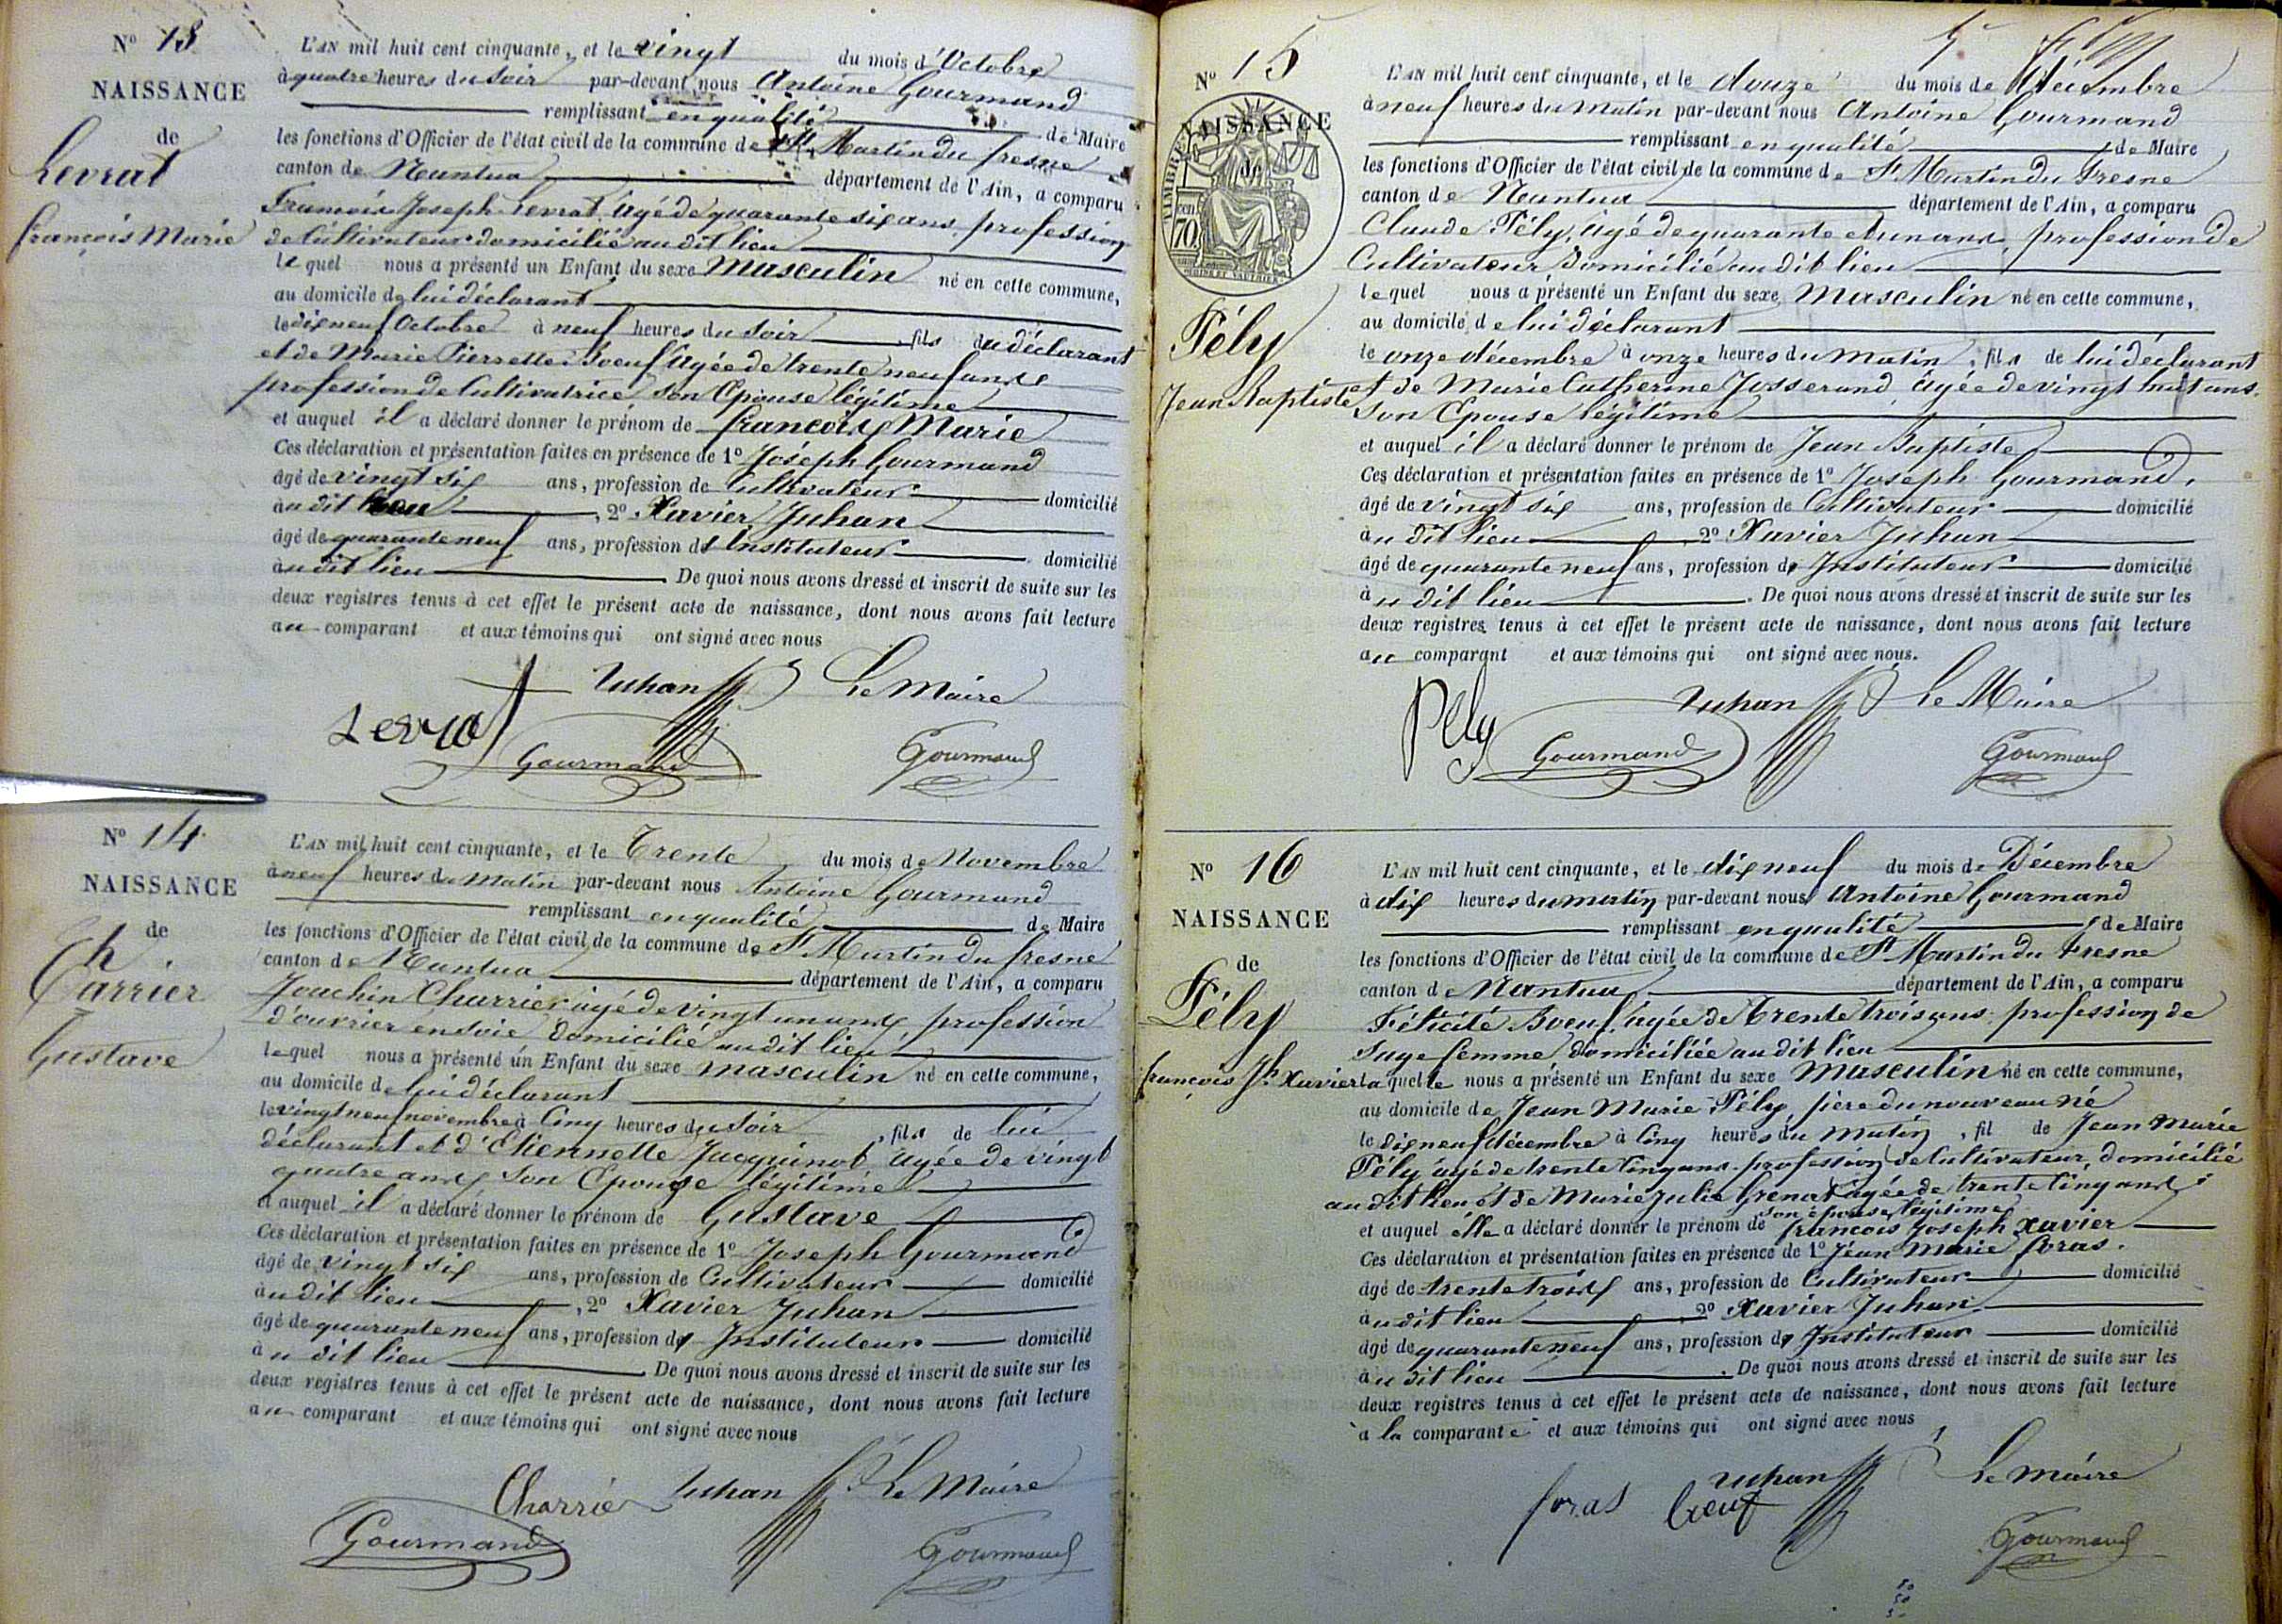 N° 13
NAISSANCE
de
Levrat
françois Marie
L'AN mil huit cent cinquante, et le vingt du mois d'Octobre
à quatre heures du Soir par-devant nous Antoine Gourmand
remplissant en qualité de Maire
les fonctions d'Officier de l'état civil de la commune de St Martin du fresne
canton de Nantua département de l'Ain, a comparu
François Joseph Levrat, âgé de quarante six ans, profession
de Cultivateur domicilié au dit lieu
lequel nous a présenté un Enfant du sexe Masculin né en cette commune,
au domicile de lui déclarant
le dix neuf Octobre à neuf heures du Soir fils du déclarant
et de Marie Pierrette Boeuf âgée de trente neuf ans
profession de Cultivatrice son Epouse légitime
et auquel il a déclaré donner le prénom de françois Marie
Ces déclaration et présentation faites en présence de 1° Joseph Gourmand
âgé de vingt six ans, profession de Cultivateur domicilié
au dit lieu, 2° Xavier Juhan
âgé de quarante neuf ans, profession d'Instituteur domicilié
au dit lieu. De quoi nous avons dressé et inscrit de suite sur les
deux registres tenus à cet effet le présent acte de naissance, dont nous avons fait lecture
au comparant et aux témoins qui ont signé avec nous
Juhan Le Maire
Levrat
Gourmand Gourmand
N° 14
NAISSANCE
de
h
Carrier
Gustave
L'AN mil huit cent cinquante, et le Trente du mois de Novembre
à neuf heures du Matin par-devant nous Antoine Gourmand
remplissant en qualité de Maire
les fonctions d'Officier de l'état civil de la commune de St Martin du fresne
canton de Nantua département de l'Ain, a comparu
Joachin Charrier âgé de vingt un ans, profession
d'ouvrier en soie domicilié au dit lieu
lequel nous a présenté un Enfant du sexe masculin né en cette commune,
au domicile de lui déclarant
le vingt neuf novembre à Cinq heures du Soir, fils de lui
déclarant et d'Etiennette Jacquinot, âgée de vingt
quatre ans son Epouse légitime
et auquel il a déclaré donner le prénom de Gustave
Ces déclaration et présentation faites en présence de 1° Joseph Gourmand
âgé de vingt six ans, profession de Cultivateur domicilié
au dit lieu, 2° Xavier Juhan
âgé de quarante neuf ans, profession d'Instituteur domicilié
au dit lieu. De quoi nous avons dressé et inscrit de suite sur les
deux registres tenus à cet effet le présent acte de naissance, dont nous avons fait lecture
au comparant et aux témoins qui ont signé avec nous
Charrier Juhan Le Maire
Gourmand Gourmand
N° 15
NAISSANCE
de
TIMBRE
70
Pély
Jean Baptiste
L'AN mil huit cent cinquante, et le douze du mois de décembre
à neuf heures du Matin par-devant nous Antoine Gourmand
remplissant en qualité de Maire
les fonctions d'Officier de l'état civil de la commune de St Martin du Fresne
canton de Nantua département de l'Ain, a comparu
Claude Pély, âgé de quarante et un ans, profession de
Cultivateur domicilié au dit lieu
lequel nous a présenté un Enfant du sexe Masculin né en cette commune,
au domicile de lui déclarant
le onze décembre à onze heures du Matin, fils de lui déclarant
et de Marie Catherine Josserand, âgée de vingt huit ans
son Epouse légitime
et auquel il a déclaré donner le prénom de Jean Baptiste
Ces déclaration et présentation faites en présence de 1° Joseph Gourmand,
âgé de vingt six ans, profession de Cultivateur domicilié
au dit lieu 2° Xavier Juhan
âgé de quarante neuf ans, profession d'Instituteur domicilié
au dit lieu. De quoi nous avons dressé et inscrit de suite sur les
deux registres tenus à cet effet le présent acte de naissance, dont nous avons fait lecture
au comparant et aux témoins qui ont signé avec nous.
Pely Juhan Le Maire
Gourmand Gourmand
N° 16
NAISSANCE
de
Pély
françois Jh Xavier
L'AN mil huit cent cinquante, et le dix neuf du mois de Décembre
à dix heures du matin par-devant nous Antoine Gourmand
remplissant en qualité de Maire
les fonctions d'Officier de l'état civil de la commune de St Martin du Fresne
canton de Nantua département de l'Ain, a comparu
Félicité Boeuf, âgée de trente trois ans, profession de
Sage femme domiciliée au dit lieu
laquelle nous a présenté un Enfant du sexe Masculin né en cette commune,
au domicile de Jean Marie Pély, père du nouveau né
le dix neuf décembre à Cinq heures du Matin, fil de Jean Marie
Pély âgé de trente cinq ans profession de Cultivateur, domicilié
au dit lieu et de Marie Julie Grenat âgée de trente Cinq ans
son épouse légitime
et auquel elle a déclaré donner le prénom de françois Joseph Xavier
Ces déclaration et présentation faites en présence de 1° Jean Marie foras.
âgé de trente trois ans, profession de Cultivateur domicilié
au dit lieu 2° Xavier Juhan
âgé de quarante neuf ans, profession d'Instituteur domicilié
au dit lieu. De quoi nous avons dressé et inscrit de suite sur les
deux registres tenus à cet effet le présent acte de naissance, dont nous avons fait lecture
à la comparante et aux témoins qui ont signé avec nous
foras boeuf Juhan Le Maire
Gourmand